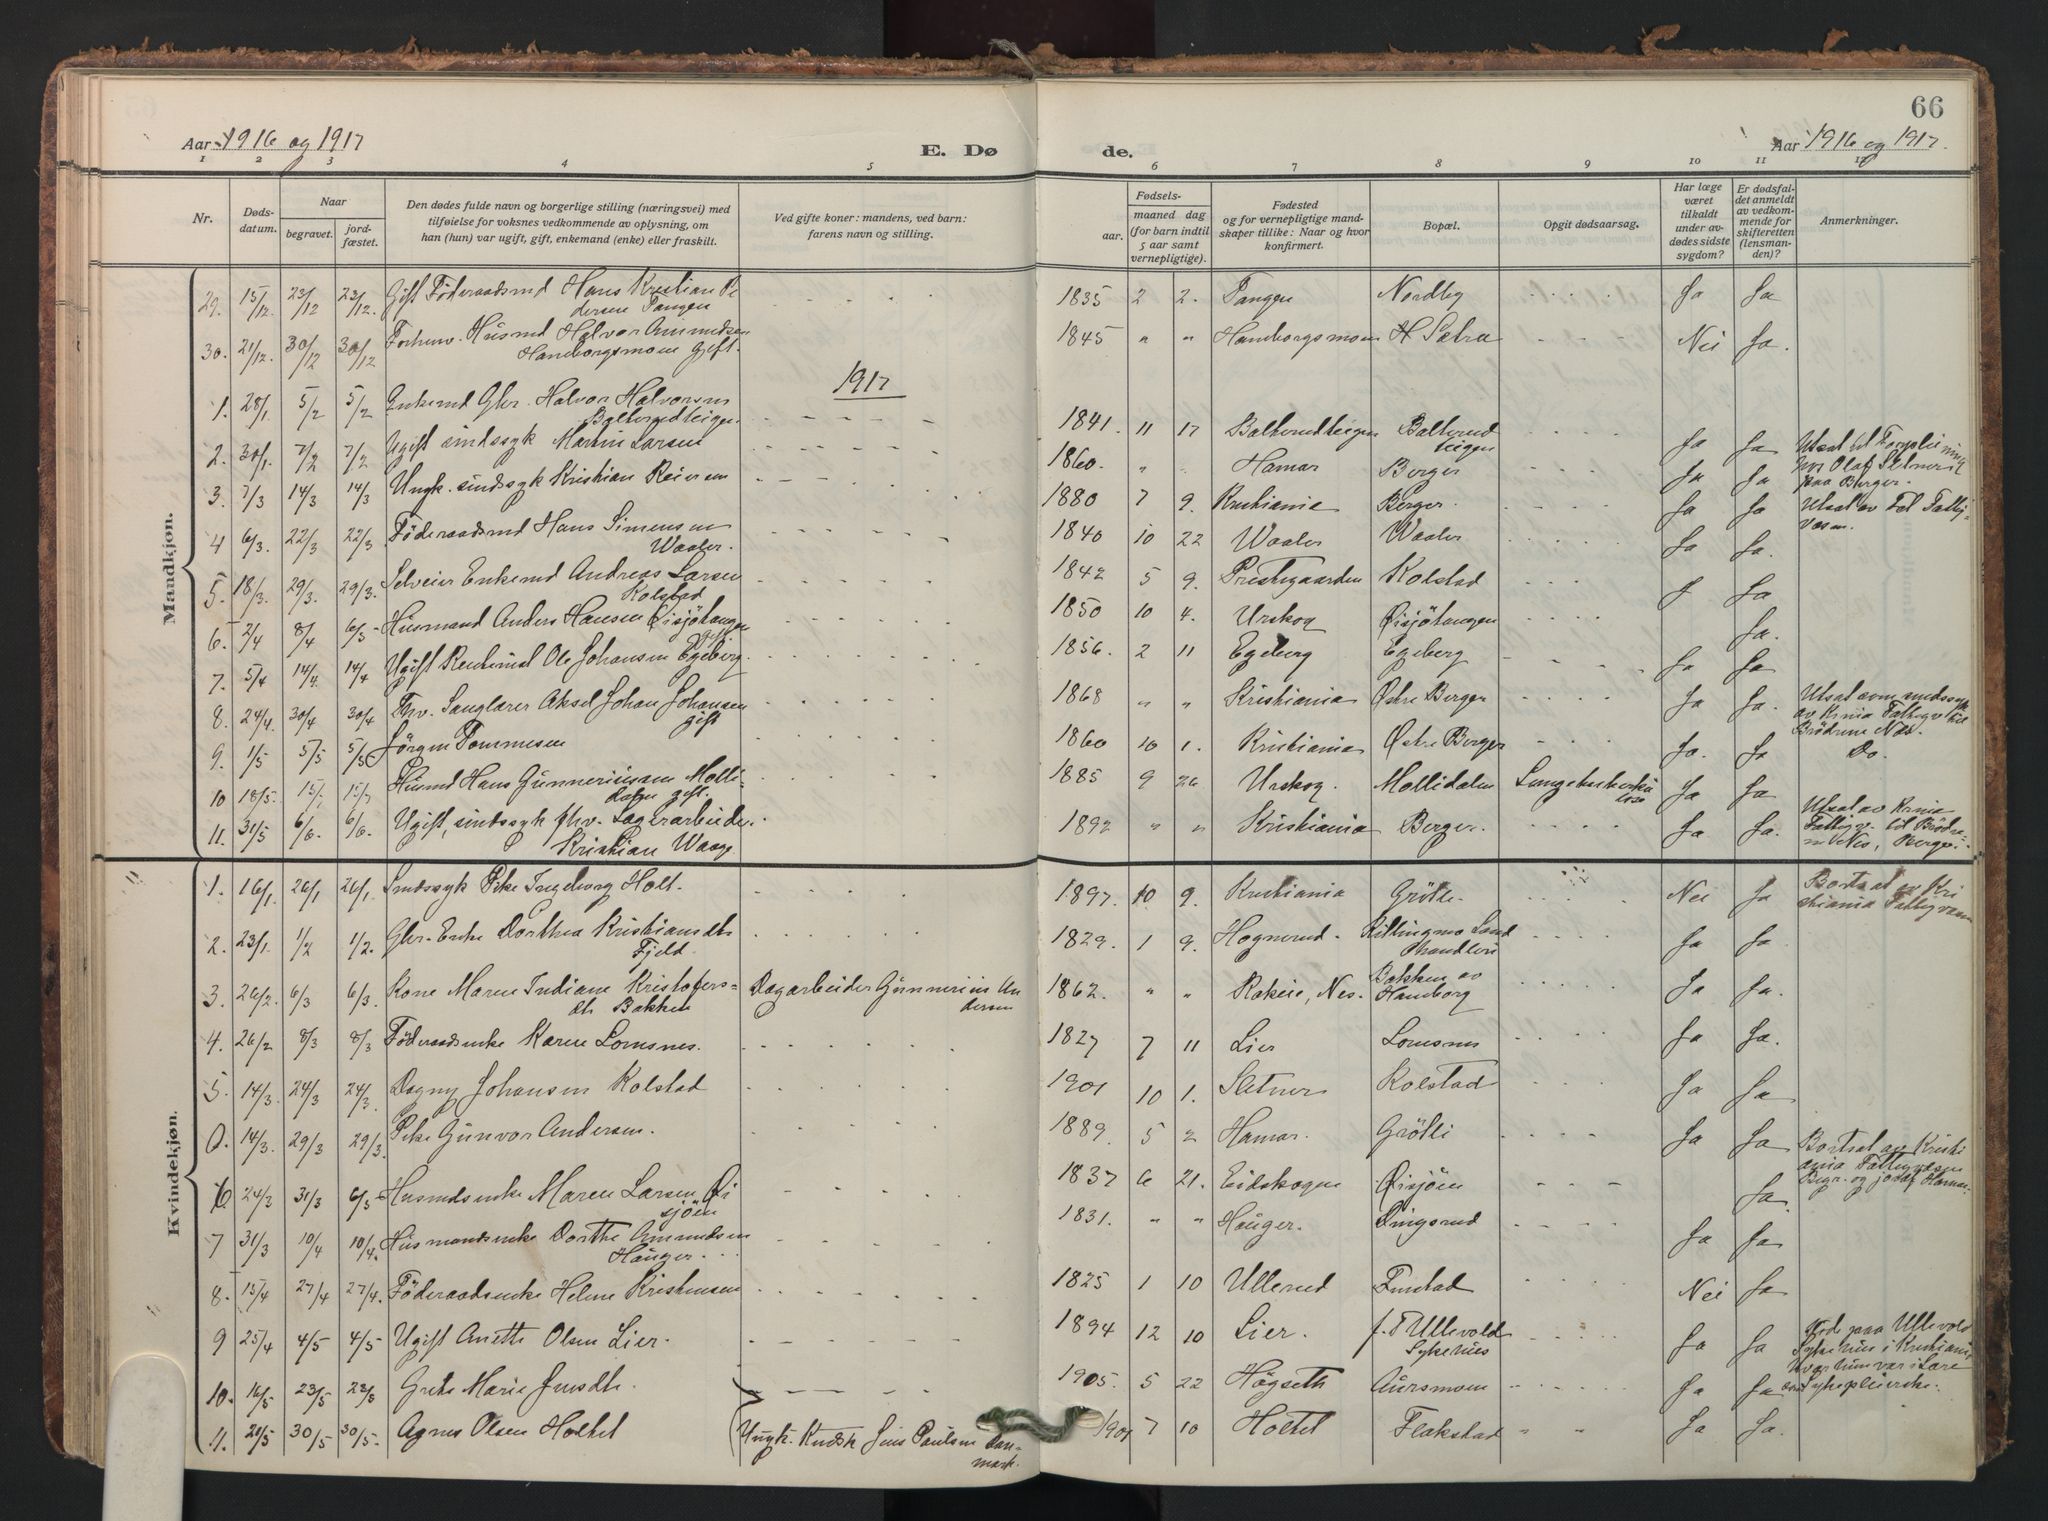 66
Aar 1916 og 1917
E. Dø
de.
Aar 1916 og 1917.
1 2 3 4 5 6 7 8 9 10 11 12
Nr.
Døds-
datum.
Naar
begravet.
jord-
fæstet.
Den dødes fulde navn og borgerlige stilling (næringsvei) med
tilføielse for voksnes vedkommende av oplysning, om
han (hun) var ugift, gift, enkemand (enke) eller fraskilt.
Ved gifte koner: mandens, ved barn:
farens navn og stilling.
Fødsels-
aar.
maaned dag
(for barn indtil
5 aar samt
vernepligtige).
Fødested
og for vernepligtige mand-
skaper tillike: Naar og hvor
konfirmert.
Bopæl.
Opgit dødsaarsag.
Har læge
været
tilkaldt
under av-
dødes sidste
sygdom?
Er dødsfal-
det anmeldt
av vedkom-
mende for
skifteretten
(lensman-
den)?
Anmerkninger.
Mandkjøn.
29. 15/12 23/12 23/12. Gift Föderaadsmd Hans Kristian Pe
dersen Tangen 1835 2 2. Tangen Nordby Ja Ja
30. 21/12. 30/12 30/12 Forhenv. Husmd Halvor Amundsen
Hamborgsmoen Gift. 1845 " " Hamborgsmoen H Sætra Nei Ja.
1917
1. 28/1. 5/2 5/2 Enkemd Gbr. Halvor Halvorsen
Balterudteigen 1841. 11 17 Balterudteigen Balterud
teigen Ja Ja
2. 30/1. 7/2 7/2 Ugift sindssyk Martin Larsen 1860. " " Hamar Berger Ja Ja Utsat til Forpleining
hos Olaf Sletner
paa Berger.
3. 7/3 14/3 14/3 Ungk. sindssyk Kristian Reiersen 1880 7 9. Kristiania Berger. Ja Ja Utsat av Fet Fattig-
væsen.
4 6/3. 22/3 22/3 Föderaadsmd Hans Simensen
Waaler. 1840 10 22 Waaler Waaler Ja Ja.
5. 18/3. 29/3. 29/3. Selveier Enkemd Andreas Larsen
Kolstad 1842 5 9. Prestegaarden Kolstad J Ja
6. 2/4 8/4 6/5 Husmand Anders Hansen Öisjötangen
gift 1850 10 4. Urskog Øisjötangen Ja.
7. 5/4 14/4. 14/4 Ugift Rentenist Ole Johansen Egeberg. 1856. 2 11 Egeberg Egeberg Ja Ja
8. 24/4. 30/4 30/4 Fhv. Sanglærer Aksel Johan Johansen
gift 1868 " " Kristiania Østre Berger Ja Ja. Utsat som sindssyk
av Krnia Fattigv til
Brödrene Næs.
9. 1/5 5/5 5/5 Jörgen Tommesen 1860 10 1. Kristiania Østre Berger Ja. Ja Do.
10 18/5. Husmd Hans Gunneriussen Molli-
dalen gift. 1885 9 26 Urskog. Mollidalen Lungetuberku
lose Ja Ja
11. 31/5 6/6. 6/6. Ugift, sindssyk fhv. Lagerarbeider
Kristian Waage 1892 " " Kristiania Berger. Ja. Ja. Utsat av Krnia
Fattigv. til Brödre-
ne Næs, Berger.
Kvindekjøn.
1. 16/1. 26/1 26/1. Sindssyk Pike Ingeborg Holt. 1897. 10 9. Kristiania Grötte. Nei Ja Bortsat av Kri
stiania Fattigvæsen
2. 23/1. 1/2 1/2. Gbr-Enke Dorthea Kristiansdtr
Fjeld. 1829. 1 9. Hognerud. Killingmo Land
handleri Ja Ja
3. 26/2. 6/3 6/3. Kone Maren Indiane Kristofers-
dtr Bakken Dagarbeider Gunnerius An
dersen 1862. " " Rakeie, Nes. Bakken av
Hamborg Ja Ja.
4. 26/2 8/3 8/3 Föderaadsenke Karen Lomsnes. 1827 7 11 Lier Lomsnes Ja Ja.
5. 14/3. 24/3 24/3. Dagny Johansen Kolstad 1901 10 1. Sletner Kolstad Ja Ja
14/3. 29/3 29/3. Pike Gunvor Andersen. 1889. 5 2 Hamar. Grötli Ja Ja Bortsat av Kristi
ania Fattigvæsen
Begr. og jordf Hamar.
6 24/3 31/3 6/5 Husmdsenke Maren Larsen Öi
sjöen 1837 6 21. Eidskogen Øisjöen Ja.
7 31/3 10/4 10/4. Husmandsenke Dorthe Amundsen
Hauger. 1831. " " Hauger. Lingsrud Ja Ja
8. 15/4 27/4 27/4. Föderaadsenke Helene Kristensen 1825 1 10 Ullerud Finstad Nei Ja
9 25/4 4/5 4/5. Ugift Anette Olsen Lier. 1894 12 10 Lier. f. T Ullevold
Sykehus Ja Ja Döde paa Ullevold
Sykehus i Kristiania,
hvor hun var i Lære
som Sykepleierske.
10. 16/5 23/5 23/5 Grete Marie Jensdtr. 1905. 5 22 Högseth Aursmoen Ja Ja
11. 20/5 30/5 30/5. Agnes Olsen Holtet Ungk. Kudsk Jens Paulsen Dan-
mark. 1901 7 10 Holtet Flakstad " " Ja Ja.